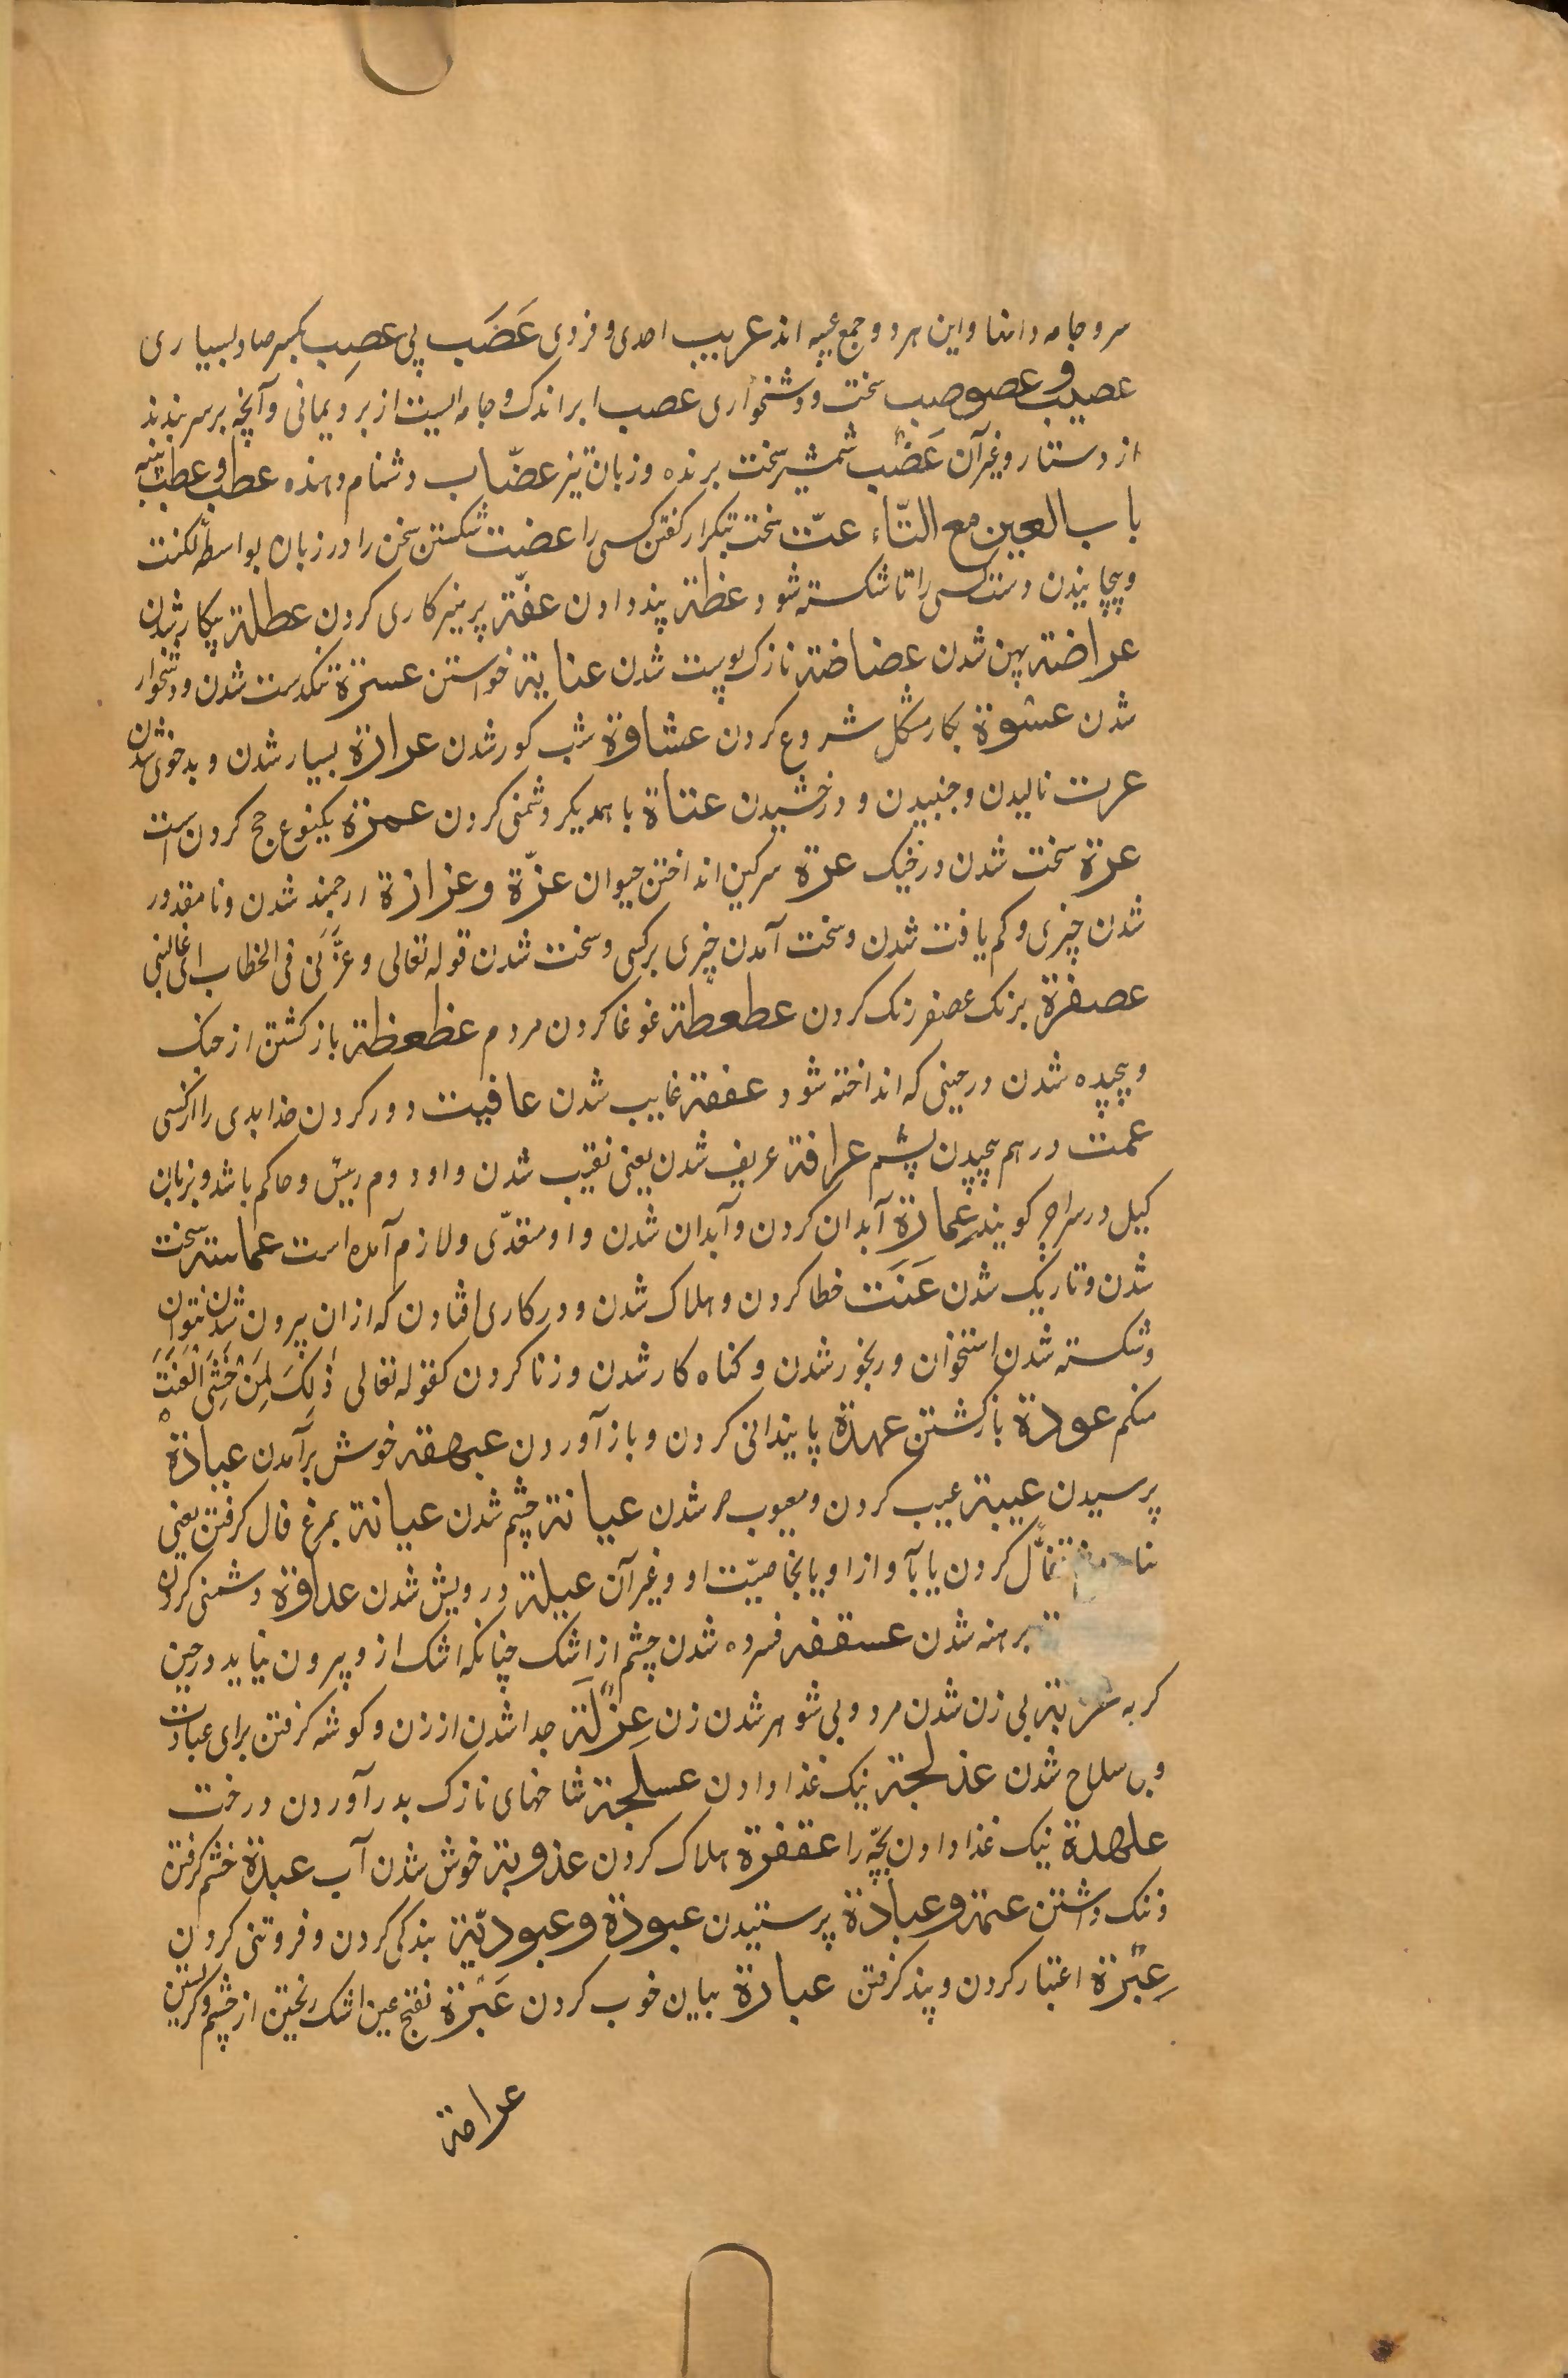 سر و جامه دانها و این هر دو جمع عیبه اند عریب احدی و فردی عَصَب پی عصِب بکسر صاد بسیاری
عصیب و عصوصب سخت و دشخواری عصب ابر اندک و جامه ایست از برد یمانی و آنچه بر سر بندند
از دستار و غیر آن عَضْب شمشیر سخت برنده و زبان تیز عضّاب دشنام دهنده عطب و عطب پنبه
باب العین مع التّاء عتّ سخت بتکرار کفتن کسی را عضت شکستن سخن را در زبان بواسطه لکنت
و پیچانیدن دست کسی را تا شکسته شود عظة پند دادن عفّة پرهیزکاری کردن عطلة بیکار شدن
عراضة پهن شدن عضاضة نازک پوست شدن عنایة خواستن عسرة تنکدست شدن و دشخوار
شدن عشوة بکار مشکل شروع کردن عشاوة شب کور شدن عرارة بسیار شدن و بدخوی شدن
عرت نالیدن و جنبیدن و درخشیدن عتاة با همدیکر دشمنی کردن عمرة یکنوع حج کردن است
عرة سخت شدن در جنک عرة سرکین انداختن حیوان عزّة و عزازة ارجمند شدن و نامقدور
شدن چیزی و کم یافت شدن و سخت آمدن چیزی بر کسی و سخت شدن قوله تعالی و عزّنی فی الخطاب ای غالبنی
عصفرة برنک عصفر رنک کردن عطعطة غوغا کردن مردم عظعظة باز کشتن از جنک
و پیچیده شدن در حینی که انداخته شود عفقة غایب شدن عافیت دور کردن خدا بدی را از کسی
عمت در هم پیچیدن پشم عرافة عریف شدن یعنی نقیب شدن و او دوم رییس و حاکم باشد و بزبان
کیل در سراجر کویند عِمارَة آبدان کردن و آبدان شدن و او متعدّی و لازم آمده است عماسة سخت
شدن و تاریک شدن عَنَت خطا کردن و هلاک شدن و در کاری افتادن که از ان بیرون شدن نتوان
و شکسته شدن استخوان و رنجور شدن و کناه کار شدن و زنا کردن کقوله تعالی ذٰلِکَ لِمَنْ خَشِیَ الْعَنَتَ
منکم عودة باز کشتن عهدة پایندانی کردن و باز آوردن عبهقه خوش برآمدن عیادة
پرسیدن عیبة عیب کردن و معیوب شدن عیانة چشم شدن عیافة بمرغ فال کرفتن یعنی
تفأّل کردن یا بآواز او یا بخاصیّت او و غیر آن عیلة درویش شدن عداوة دشمنی کردن
برهنه شدن عسقفه فسرده شدن چشم از اشک چنانکه اشک از و بیرون نیاید در حین
کریه عزبة بی زن شدن مرد و بی شوهر شدن زن عِزْلَة جدا شدن از زن و کوشه کرفتن برای عبادت
و بی سلاح شدن عذلجة نیک غذا دادن عسلجة شاخهای نازک بدر آوردن درخت
علهدة نیک غذا دادن بچّه را عقفرة هلاک کردن عذوبة خوش شدن آب عبدة خشم کرفتن
و ننک داشتن عتمة و عبادة پرستیدن عبودة و عبودیّة بندکی کردن و فروتنی کردن
عِبْرَة اعتبار کردن و پند کرفتن عبارة بیان خوب کردن عَبْرَة بفتح عین اشک ریختن از چشم و کریستن
عرامة